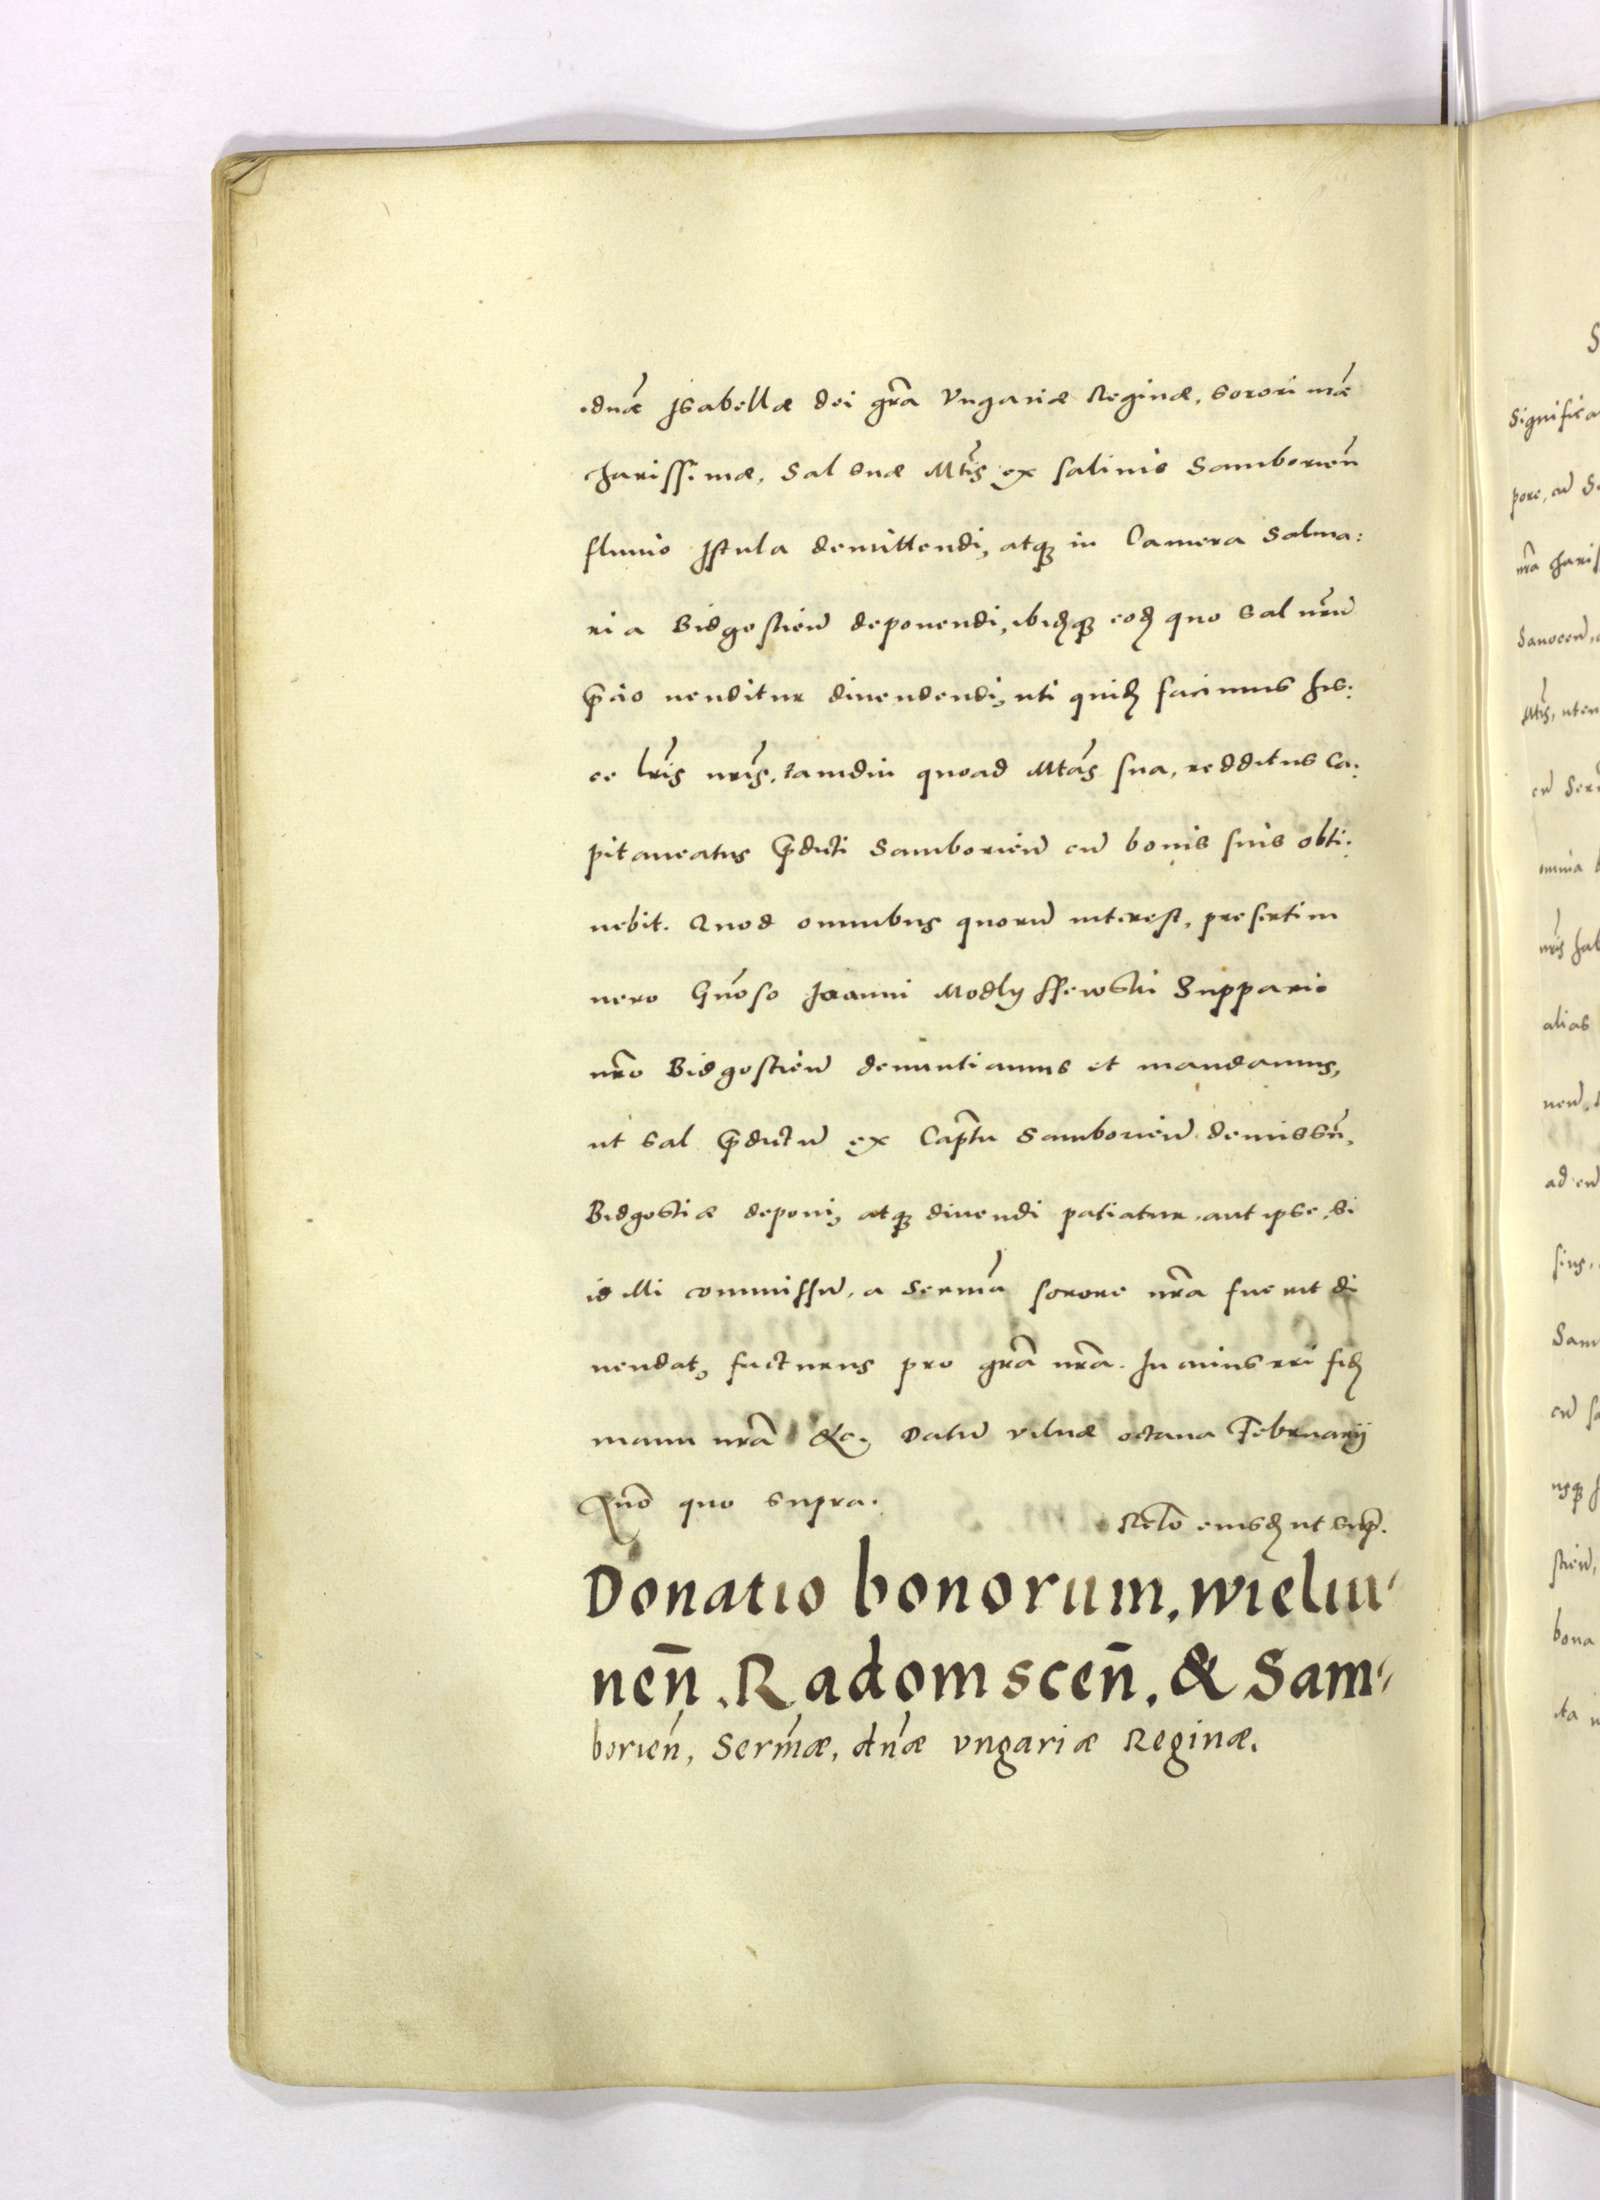 dnae Isabellae dei gra Vngariae Reginae, sorori nrae
charissimae, Sal suae Mtis ex salinis Samborien
fluuio Istula demittendi, atq in Camera Salina:
ria Bidgostien deponendi, ibidq eod quo Sal nrum
precio uenditur diuendendi, uti quid facimus his:
ce lris nris, tamdiu quoad Mtas sua, redditus Ca:
pitaneatus predicti Samborien cum bonis suis obti:
nebit. Quod omnibus quorum interest, presertim
uero Gnoso Joanni Modlyssewski Suppario
nro Bidgostien denuntiamus et mandamus,
ut sal predictum ex Captu Samborien demissum,
Bidgostiae deponi, atq diuendi patiatur, aut ipse, si
id illi commissum, a Serma sorore nra fuerit di
uendat, facturus pro gra nra. In cuius rei fid
manu nra &c. Datum Vilnae octaua Februarij
Anno quo supra.
Relo eiusd ut supr.
Donatio bonorum, wielu-
nen, Radomscen, & Sam-
borien, Sermae, dnae Vngariae Reginae.
Significa
pore, cum S
nra charis
Sanocen,
Mtis, uten
cum Ser
omnia b
nris hab
alias
nen,
ad eu
suis,
Sam
cum sa
usq
stien,
bona
ita